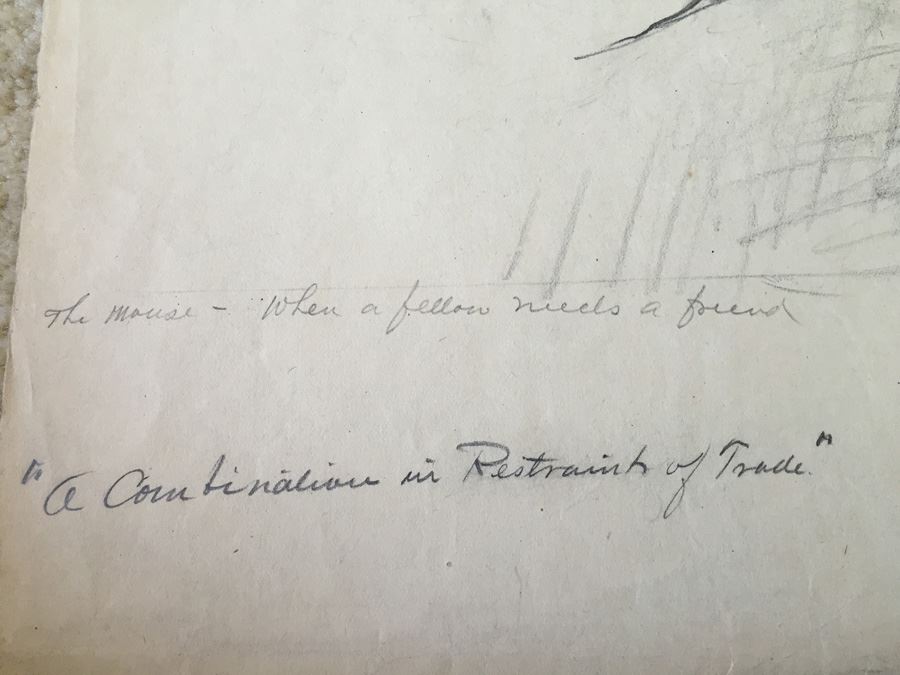 The Mouse - When a fellow needs a friend
"A Combination in Restraint of Trade."